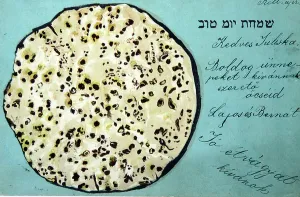 שמחת יום טוב
Kedves Juliska,
Boldog ünne-
peket kívánnak
szerető
öcseid
Lajos és Bernát
Jó étvágyat